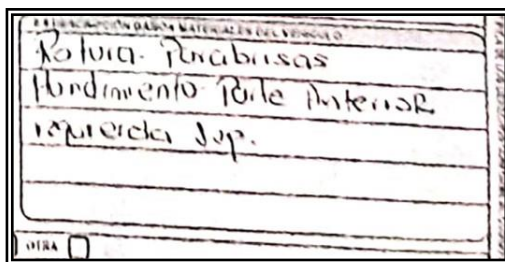 DESCRIPCIÓN DAÑOS MATERIALES DEL VEHICULO
Rotura Parabrisas
Hundimiento Parte Anterior
izquierda Sup.
OTRA